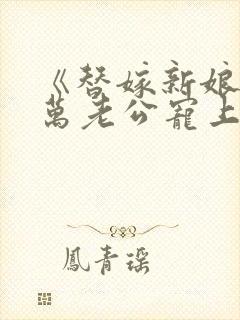 《替嫁新娘
萬老公寵上
鳳青瑤